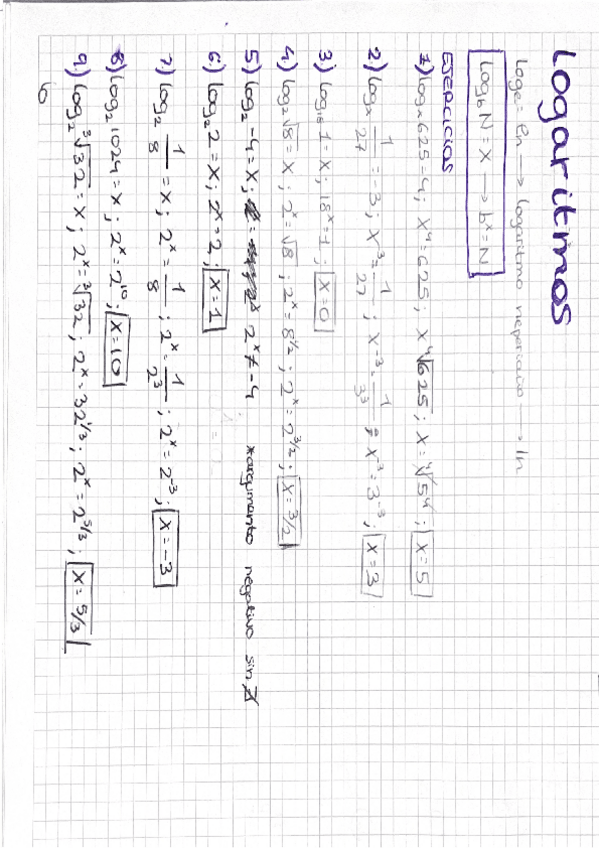 Logaritmos
loge = ln → logaritmo neperiano → ln
log_b N = X → b^x = N
EJERCICIOS
1) log_x 625 = 4; x⁴ = 625; x ⁴√625; x = ⁴√5⁴; x = 5
2) log_x 1/27 = -3; x^-3 = 1/27; x^-3 = 1/3³; x^-3 = 3^-3; x = 3
3) log_18 1 = x; 18^x = 1; x = 0
4) log_2 √8 = x; 2^x = √8; 2^x = 8^1/2; 2^x = 2^3/2; x = 3/2
5) log_2 -4 = x; 2^x ≠ -4 *argumento negativo sin
6) log_2 2 = x; 2^x = 2; x = 1
7) log_2 1/8 = x; 2^x = 1/8; 2^x = 1/2³; 2^x = 2^-3; x = -3
8) log_2 1024 = x; 2^x = 2^10; x = 10
9) log_2 ³√32 = x; 2^x = ³√32; 2^x = 32^1/3; 2^x = 2^5/3; x = 5/3